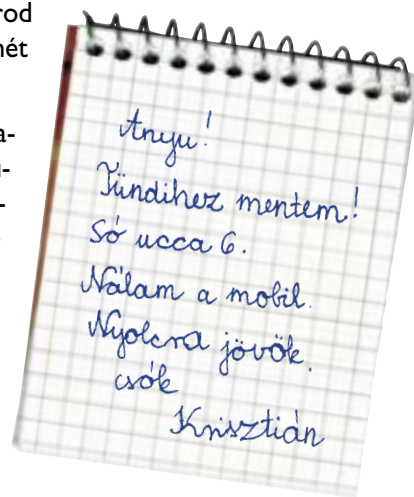 rod
hét
a-
-
-
Anyu!
Tündihez mentem!
Só ucca 6.
Nálam a mobil.
Nyolcra jövök.
csók
Krisztián